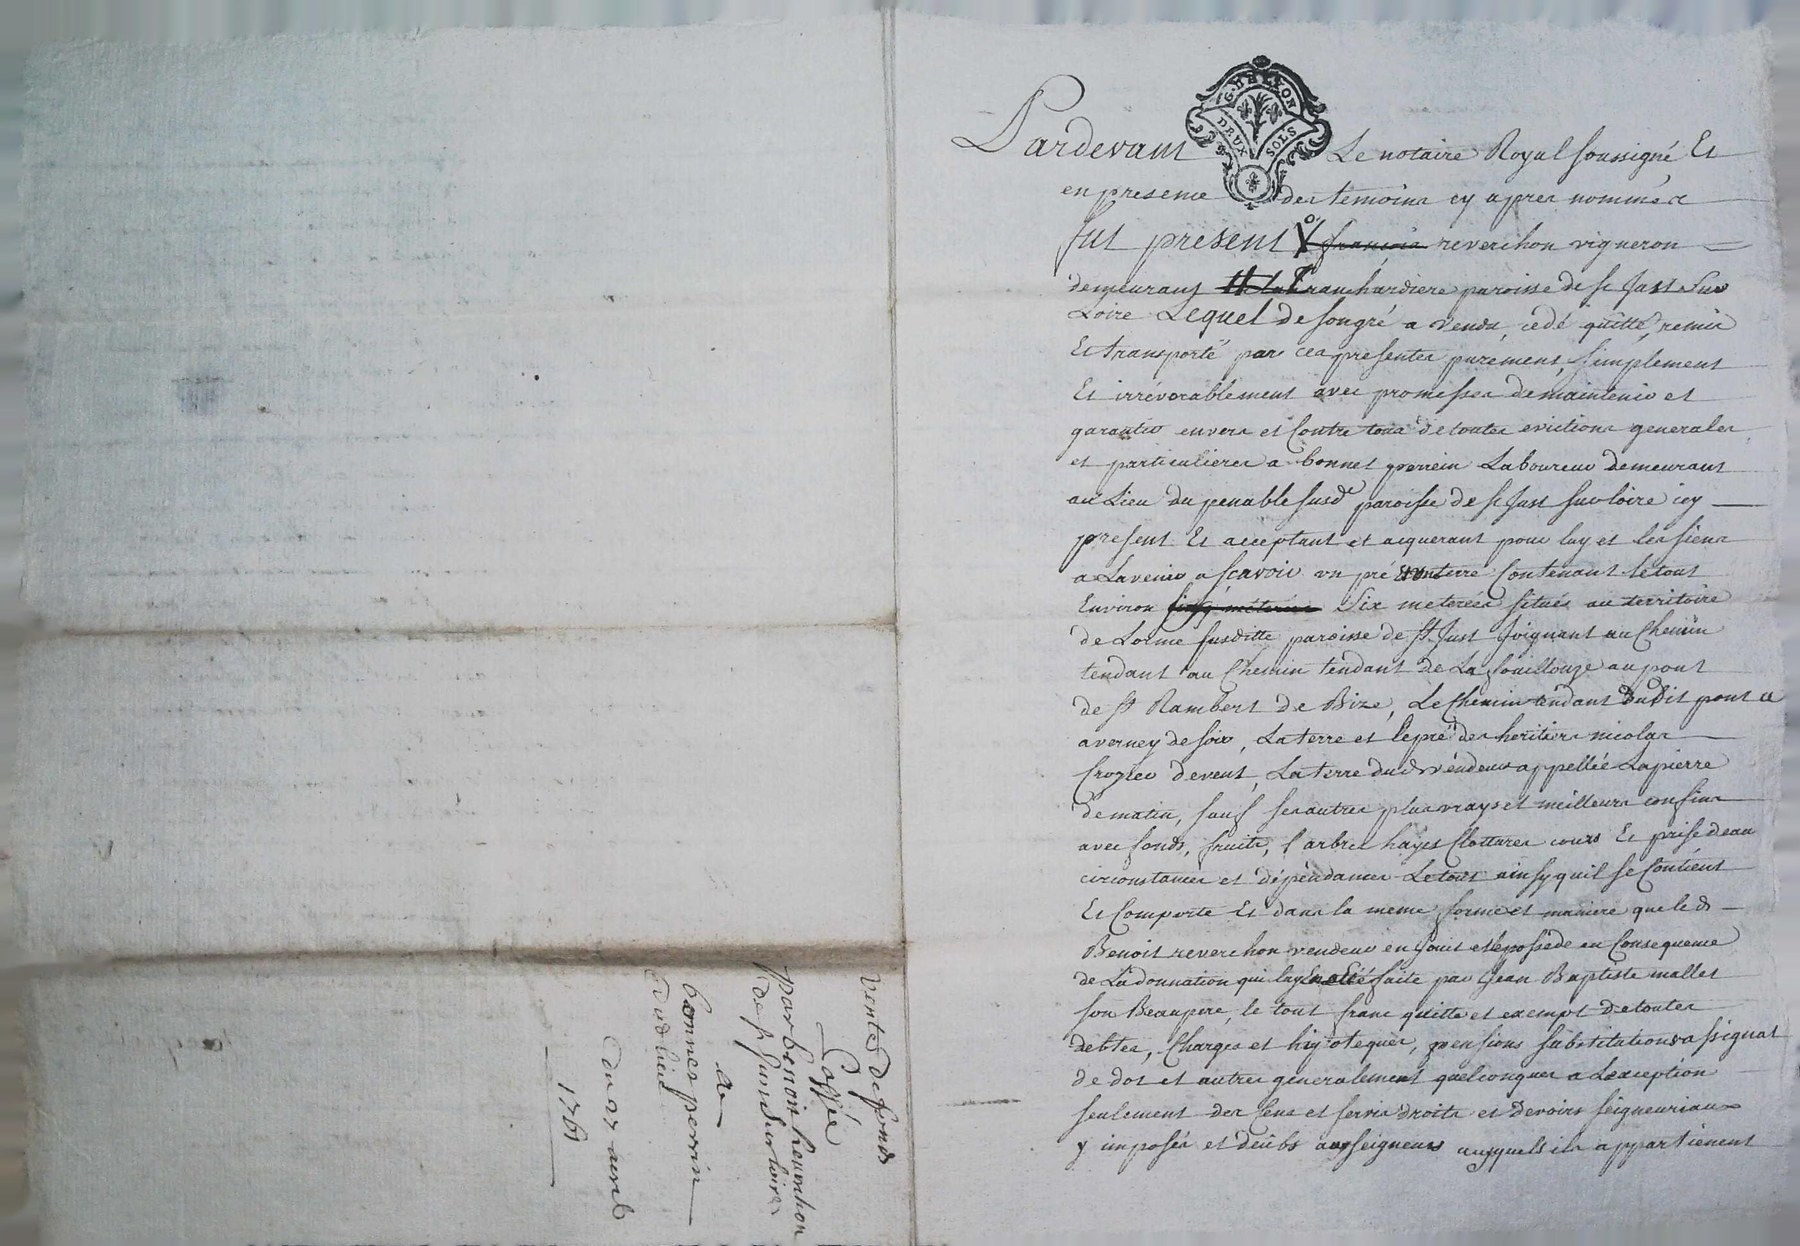 G. DE LYON
DEUX SOLS
Pardevant Le notaire Royal soussigné Et
en presence des temoins cy apres nommés
fut present françois reverchon vigneron
demeurant franchardiere paroisse de st Just sur
Loire Lequel de son gré a vendu, cedé quitté, remis
Et transporté par ces presentes purement, simplement
Et irrévocablement avec promesses de maintenir et
garantir envers et Contre tous de toutes evictions generales
et particulieres a bonnet perrein Laboureur demeurant
au Lieu du penable susd paroisse de st Just sur loire icy
present Et acceptant et acquerant pour luy et les siens
a Lavenir a scavoir un pré et une terre Contenant le tout
Environ cinq meterées Six meterées situés au territoire
de Lorme susditte paroisse de st Just Joignant au Chemin
tendant au Chemin tendant de La fouillouze au pont
de st Rambert de Bize, Le Chemin tendant dudit pont a
averney de soir, La terre et le pré des heritiers nicolas
Crozier de vent, La terre dud vendeur appellée Lapierre
de matin, sauf ses autres plus vrays et meilleurs confins
avec fonds, fruits, arbres hayes Clottures cours Et prise deau
circonstances et dépendances Le tout ainsy quil se Contient
Et Comporte Et dans la meme forme et maniere que led
Benoit reverchon vendeur en Jouit et le possede en Consequence
de La donnation qui luy en a été faite par Jean Baptiste mallet
son Beaupere, le tout franc quitte et exempt de toutes
debtes, Charges et hipoteques, pensions substitutions assignat
de dot et autres generalement quelconques a Lexception
seulement des Cens et servis droits et devoirs seigneuriaux
y imposés et deübs aux seigneurs auxquels ils appartienent
vente de fonds
Passée
par benoit reverchon
de st Just sur loire
A
bonnet perrin
dud lieu
Du 27 avril
1761